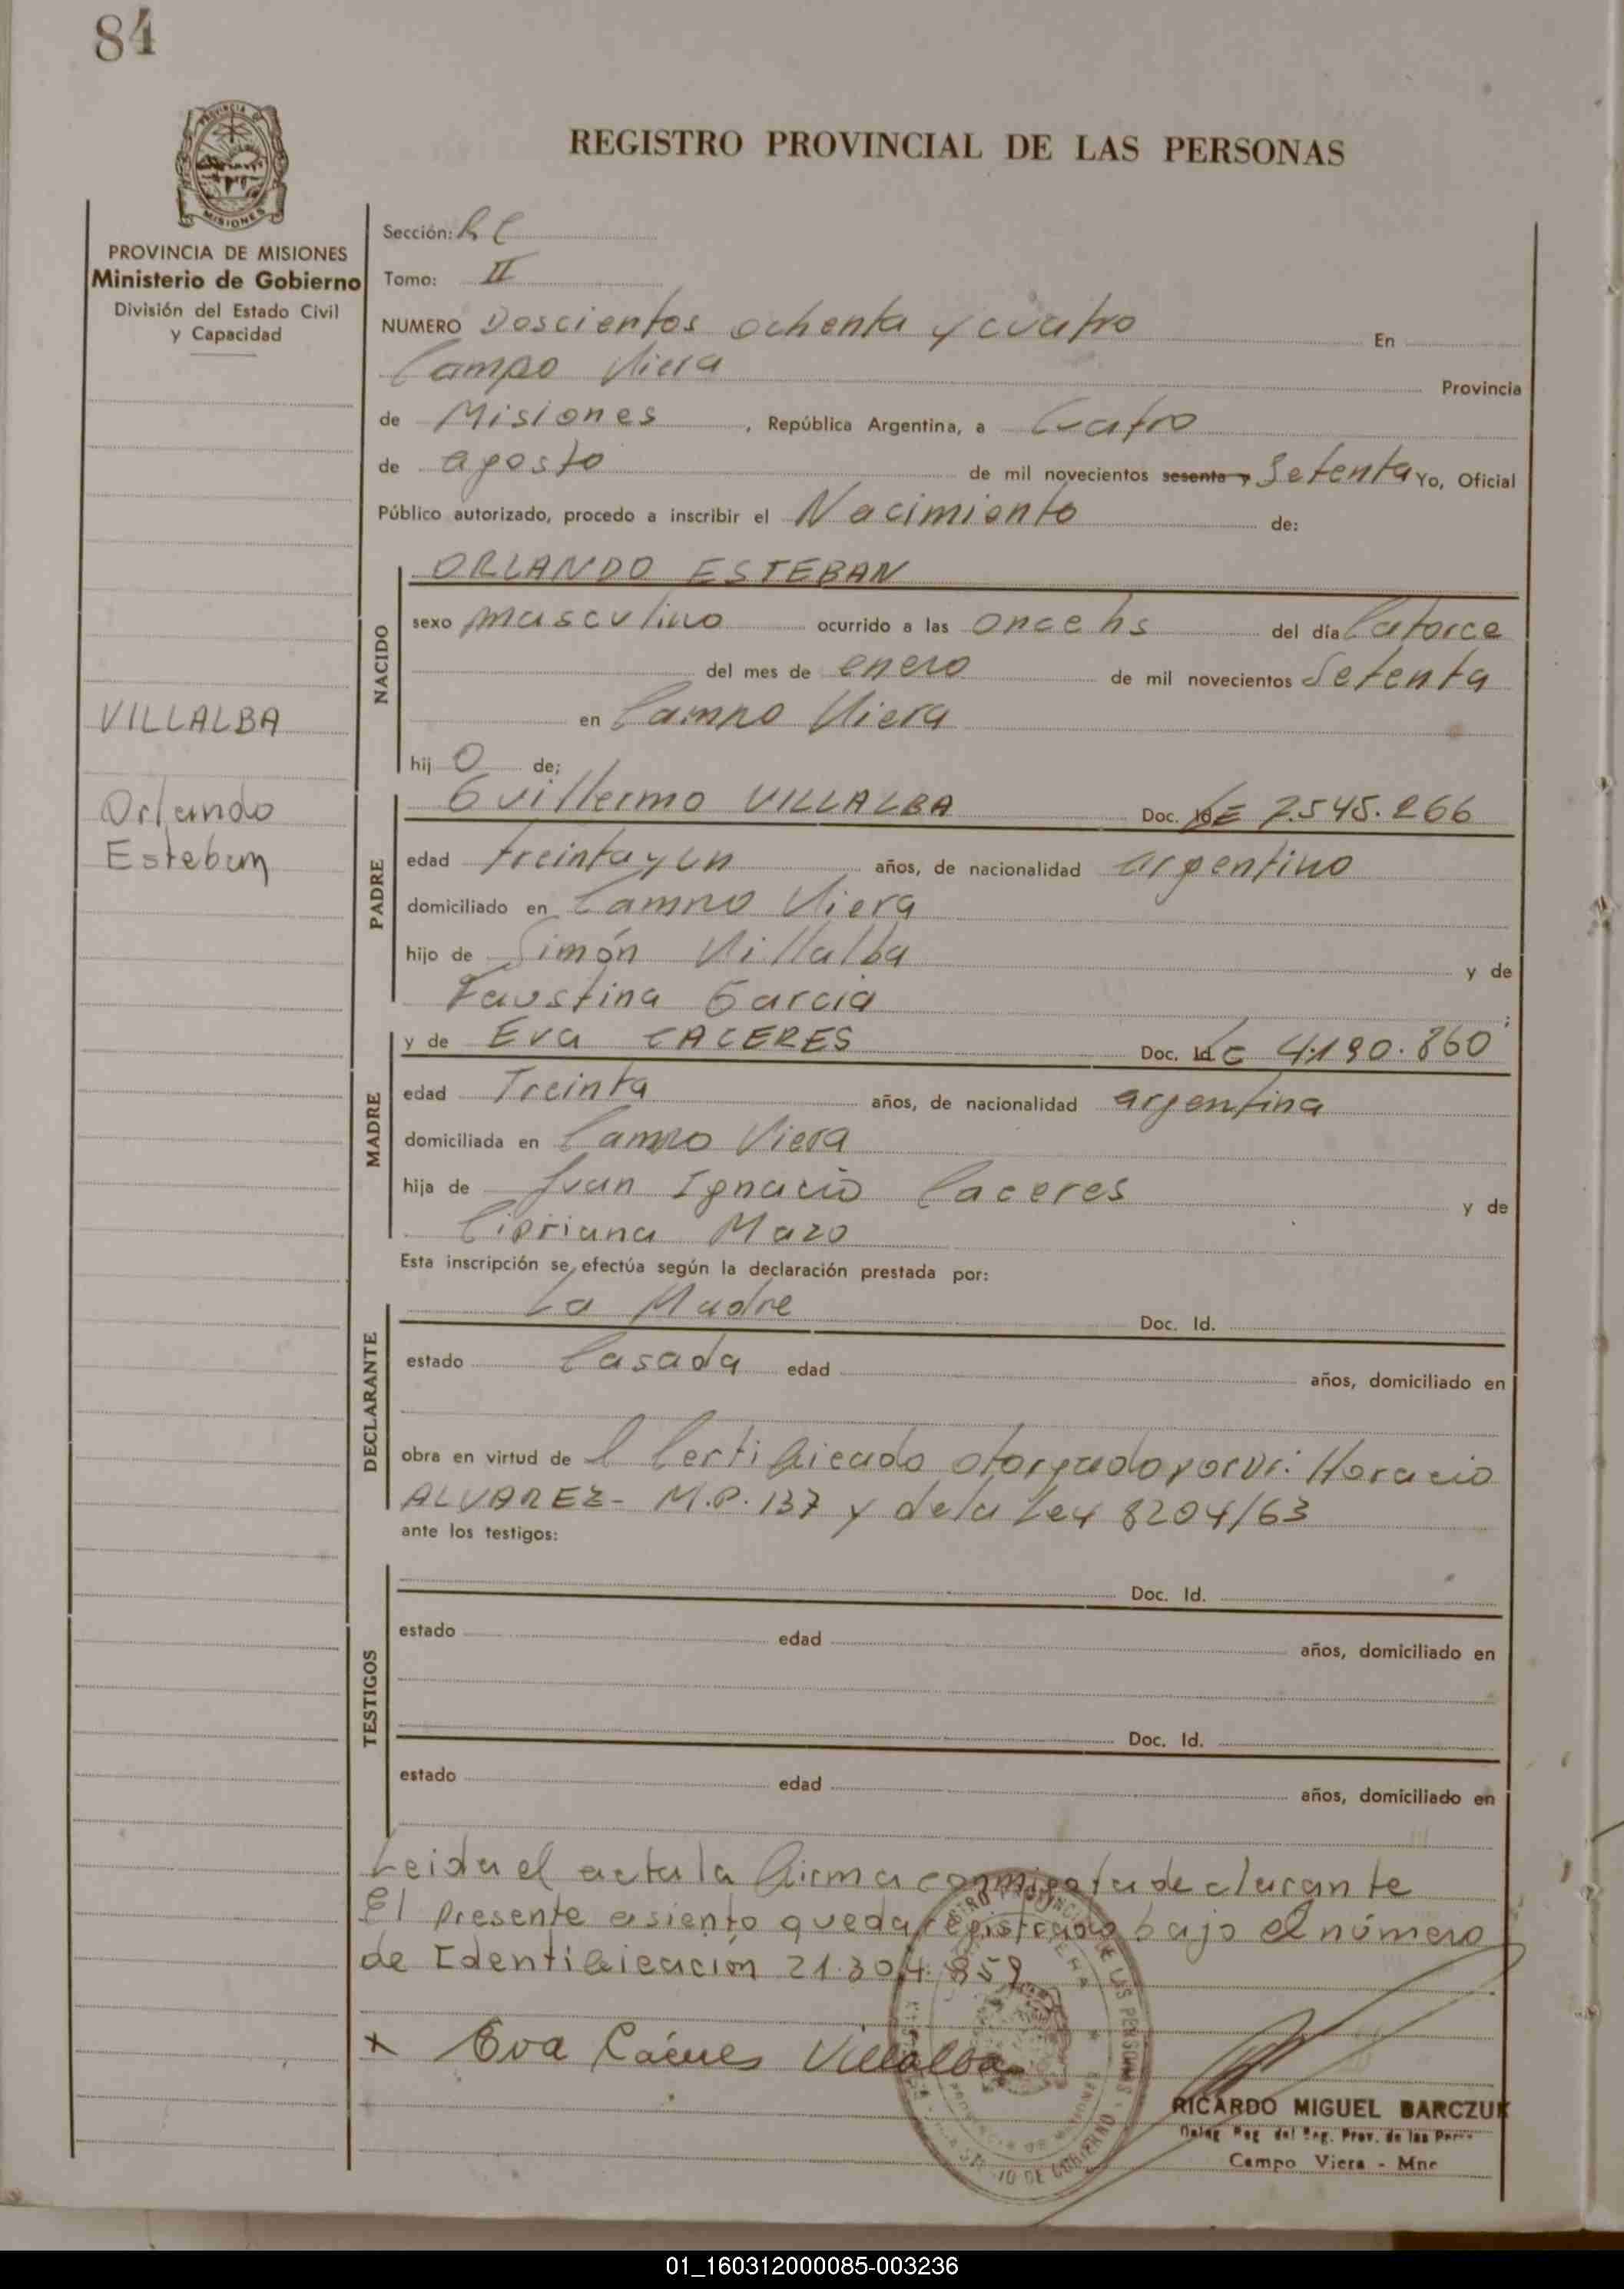 84
PROVINCIA DE
MISIONES
PROVINCIA DE MISIONES
Ministerio de Gobierno
División del Estado Civil
y Capacidad
VILLALBA
Orlando
Esteban
REGISTRO PROVINCIAL DE LAS PERSONAS
Sección:
Tomo: II
NUMERO Doscientos ochenta y cuatro En
Campo Viera Provincia
de Misiones, República Argentina, a Cuatro
de agosto de mil novecientos sesenta y Setenta Yo, Oficial
Público autorizado, procedo a inscribir el Nacimiento de:
NACIDO
ORLANDO ESTEBAN
sexo masculino ocurrido a las once hs del día Catorce
del mes de enero de mil novecientos Setenta
en Campo Viera
hij o de;
PADRE
Guillermo VILLALBA Doc. Id. LE 7.545.266
edad treinta y un años, de nacionalidad argentino
domiciliado en Campo Viera
hijo de Simón Villalba y de
Faustina Garcia ;
MADRE
y de Eva CACERES Doc. Id. LC 4.190.860
edad Treinta años, de nacionalidad argentina
domiciliada en Campo Viera
hija de Juan Ignacio Caceres y de
Cipriana Mazo
Esta inscripción se efectúa según la declaración prestada por:
DECLARANTE
La Madre Doc. Id.
estado Casada edad años, domiciliado en
obra en virtud de l Certificado otorgado por Dr. Horacio
ALVAREZ- M.P. 137 y de la Ley 8204/63
ante los testigos:
TESTIGOS
Doc. Id.
estado edad años, domiciliado en
Doc. Id.
estado edad años, domiciliado en
Leida el acta la firma conmigo la declarante
El presente asiento queda registrado bajo el número
de Identificación 21.304.859
x Eva Cáceres Villalba
RICARDO MIGUEL BARCZUK
Deleg Reg del Reg. Prov. de las Pers
Campo Viera - Mnes
01_160312000085-003236